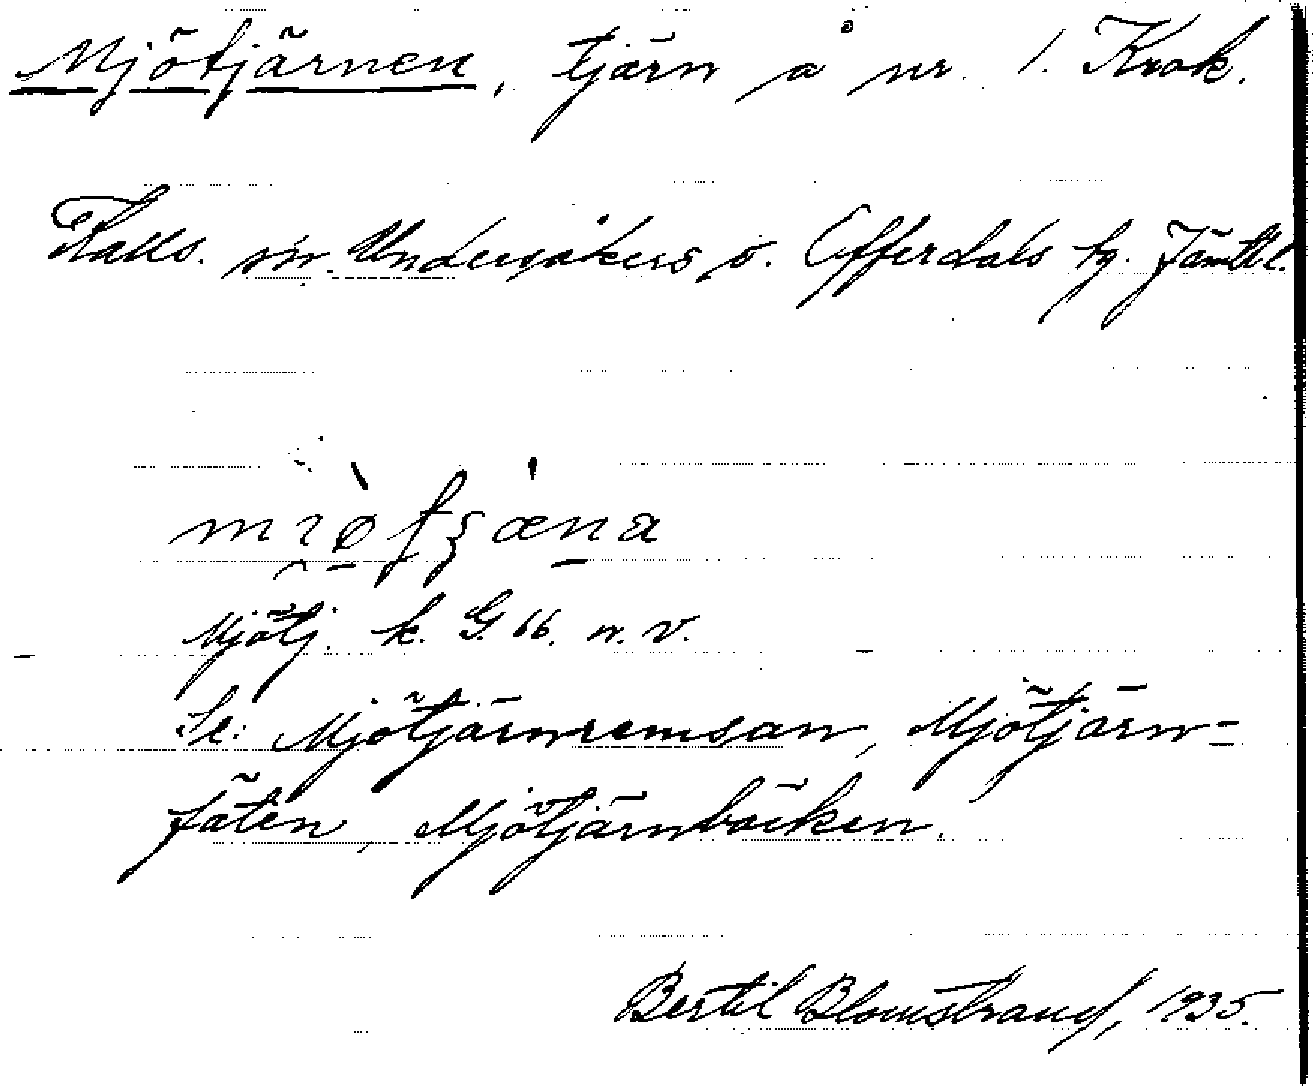 Mjötjärnen, tjärn å nr. 1. Krok.
Kalls. sn. Undersåkers o. Offerdals tg. Jämtl.
Mjötj. k. G. 66. n. v.
Se: Mjötjärnremsan, Mjötjärn-
täten, Mjötjärnbäcken.
Bertil Blomstrand, 1935.